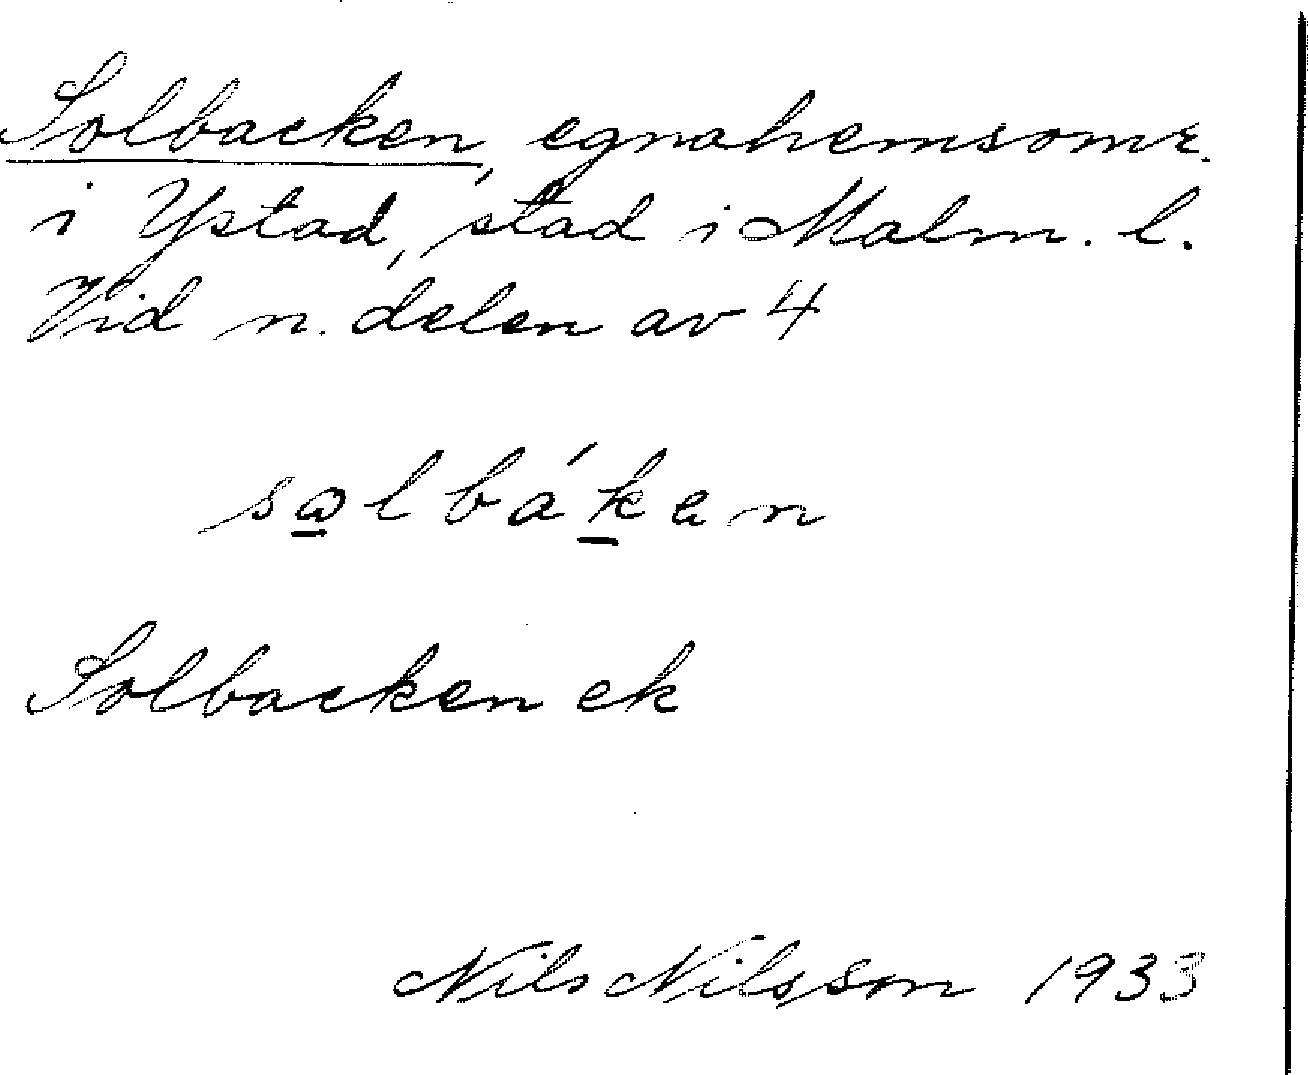 Solbacken, egnahemsomr.
i Ystad, stad i Malm. l.
Vid n. delen av 4
sålbáken
Solbacken ek
Nils Nilsson 1933